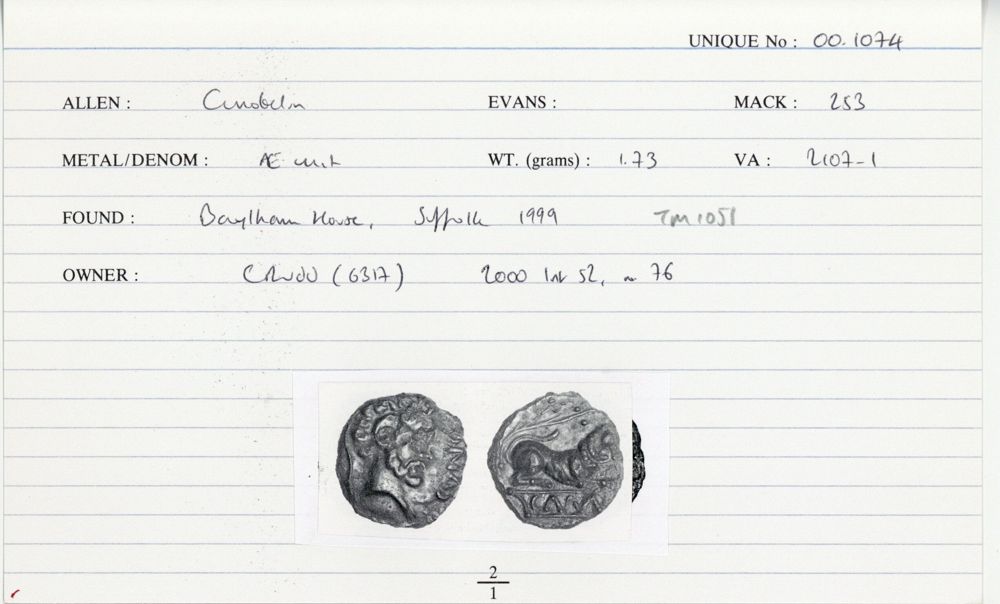 UNIQUE No : 00.1074
ALLEN : Cunobelin EVANS : MACK : 253
METAL/DENOM : Æ unit WT. (grams) : 1.73 VA : 2107-1
FOUND : Baylham House, Suffolk 1999 TM1051
OWNER : 2000 52, 76
CAM
2
1